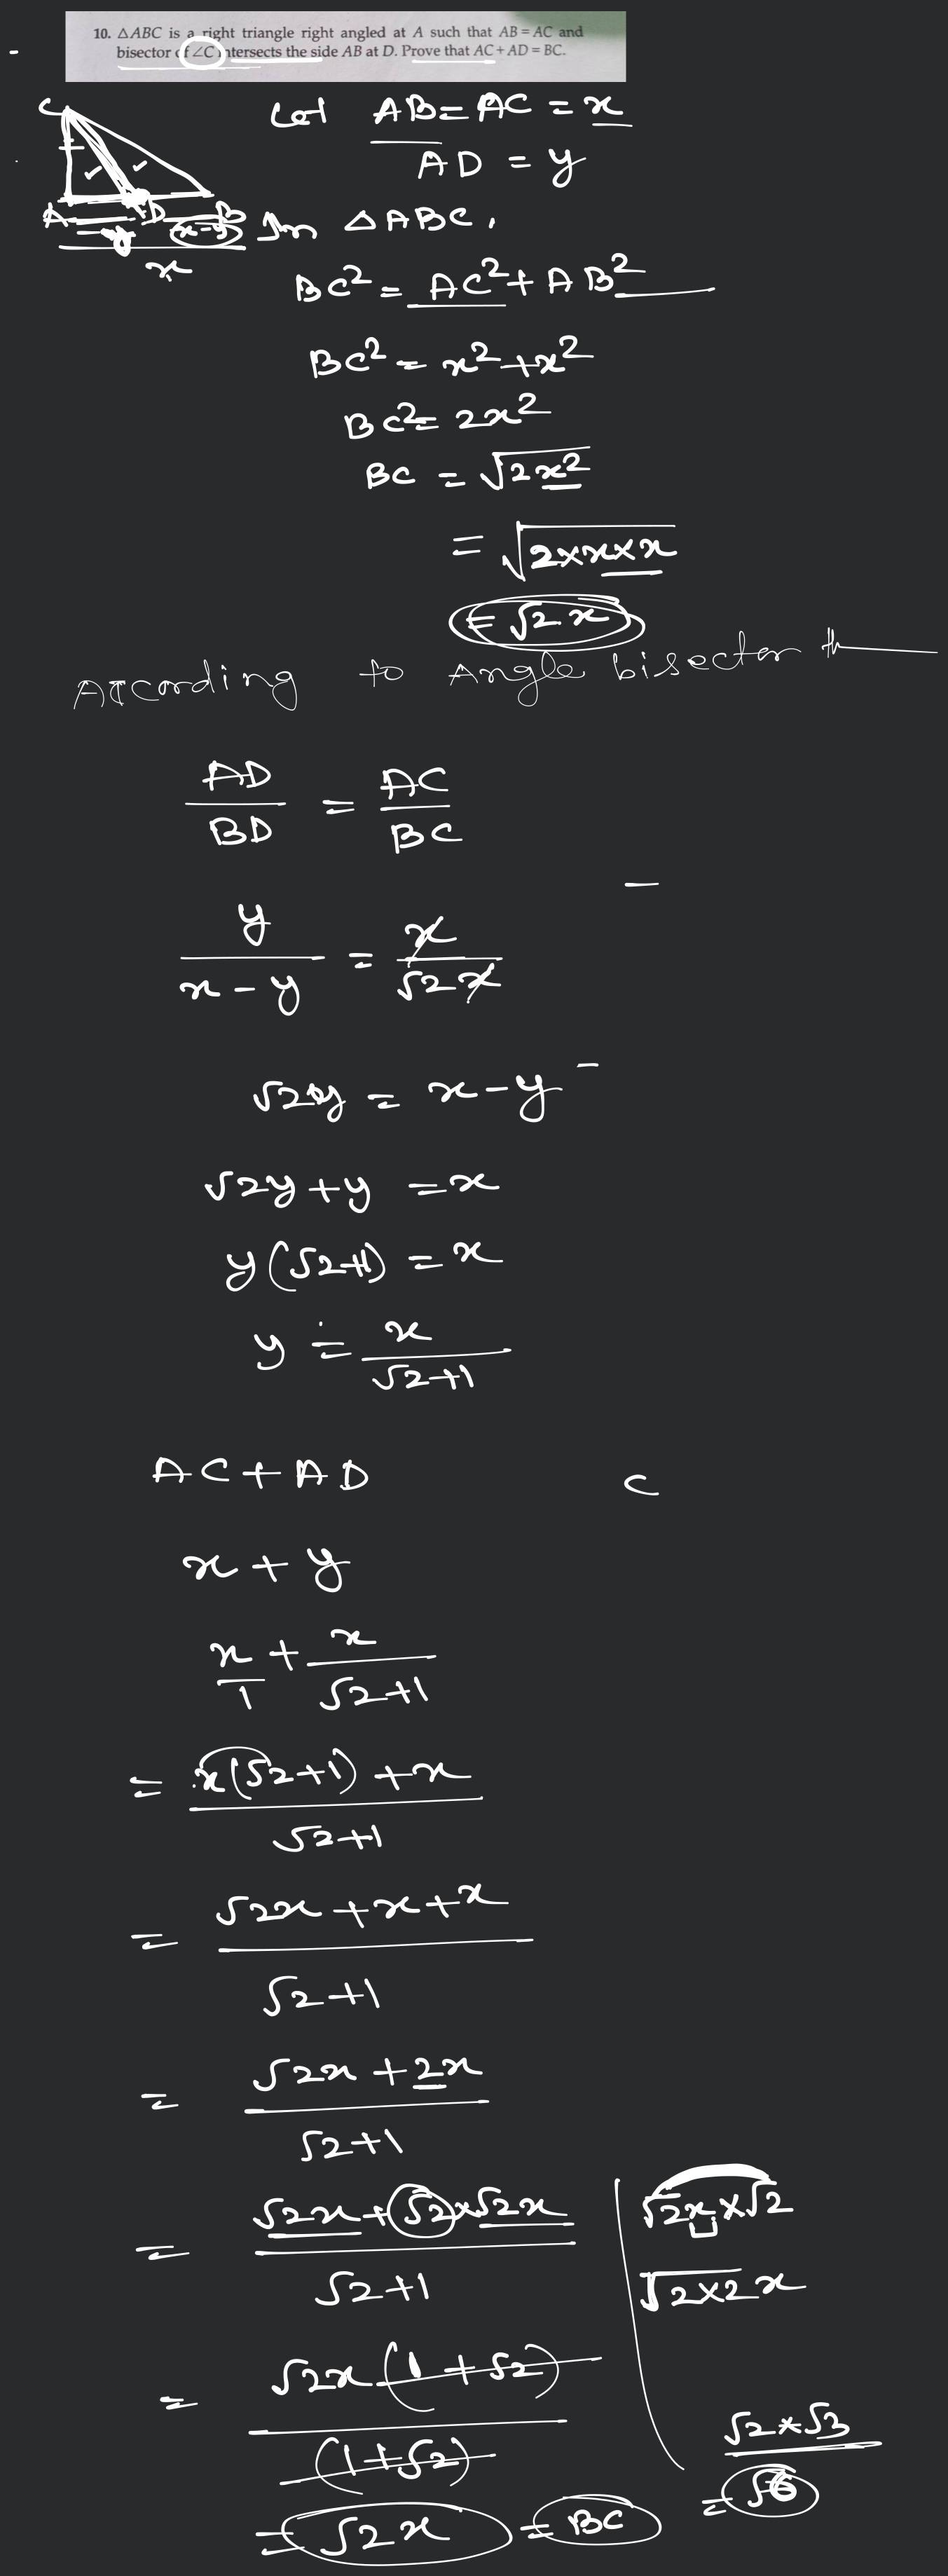 10. △ABC is a right triangle right angled at A such that AB = AC and
bisector of ∠C intersects the side AB at D. Prove that AC + AD = BC.
Let AB = AC = x
AD = y
C
A D B
y x-y
x
In △ABC,
BC² = AC² + AB²
BC² = x² + x²
BC² = 2x²
BC = √2x²
= √2×x×x
= √2 x
According to Angle bisector th
AD/BD = AC/BC
y/(x-y) = x/√2x
√2y = x-y
√2y + y = x
y(√2+1) = x
y = x/(√2+1)
AC + AD
C
x + y
x/1 + x/(√2+1)
= (x(√2+1) + x)/(√2+1)
= (√2x + x + x)/(√2+1)
= (√2x + 2x)/(√2+1)
= (√2x + √2×√2x)/(√2+1)
√2x×√2
√2×2 x
= √2x(1+√2)/(1+√2)
√2×√3
= √6
= √2x = BC